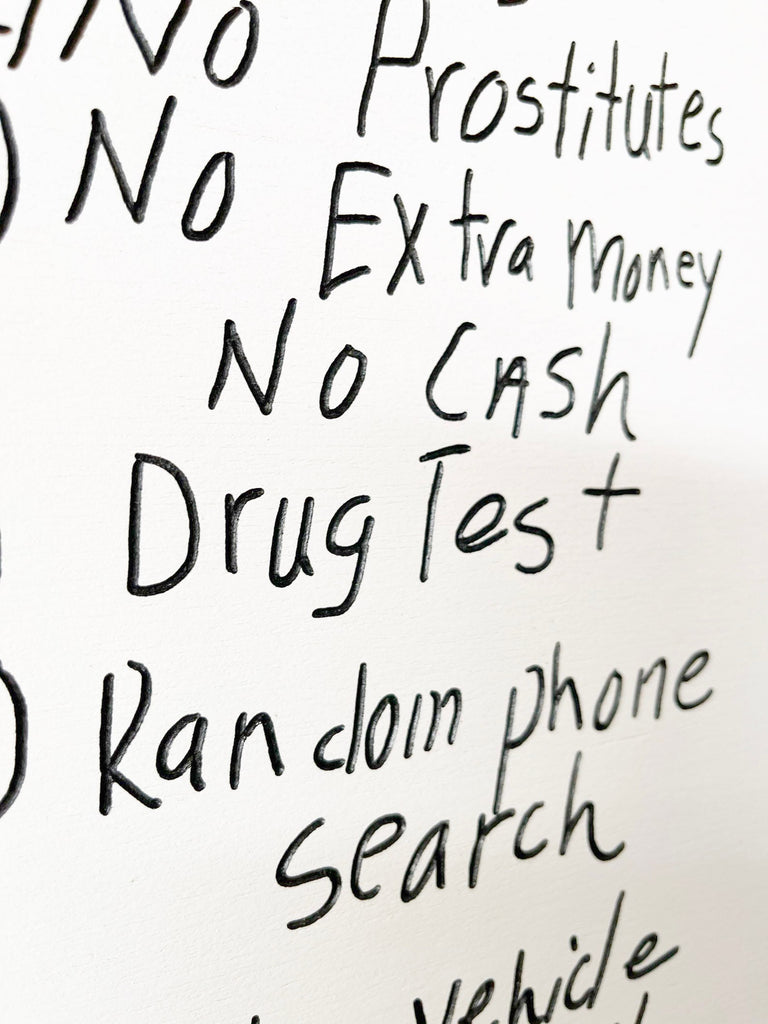 No Prostitutes
No Extra Money
No CASh
Drug Test
Random phone
search
vehicle